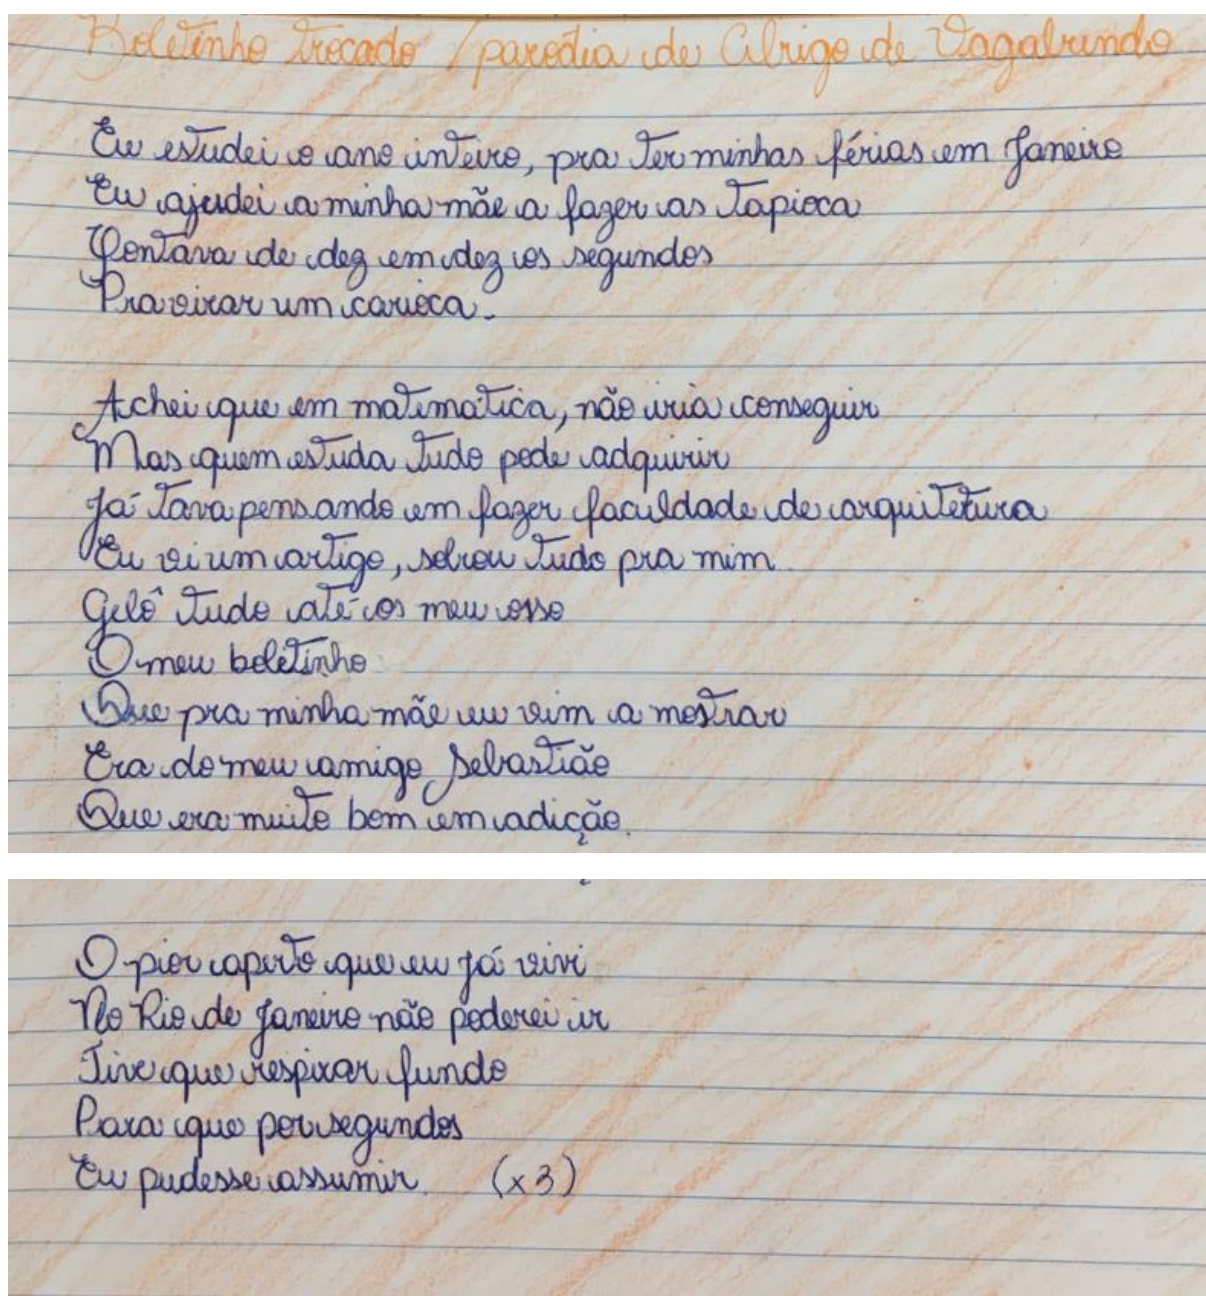 Boletinho trocado / paródia de Abrigo de Vagabundo
Eu estudei o ano inteiro, pra ter minhas férias em Janeiro
Eu ajudei a minha mãe a fazer as tapioca
Contava de dez em dez os segundos
Pra virar um carioca.
Achei que em matimatica, não iria conseguir
Mas quem estuda tudo pode adquirir
Já tava pensando em fazer faculdade de arquitetura
Eu vi um artigo, sobrou tudo pra mim
Gelô tudo até os meu osso
O meu boletinho
Que pra minha mãe eu vim a mostrar
Era do meu amigo Sebastião
Que era muito bom em adição.
O pior aperto que eu já vivi
No Rio de Janeiro não poderei ir
Tive que respirar fundo
Para que por segundos
Eu pudesse assumir. (x3)